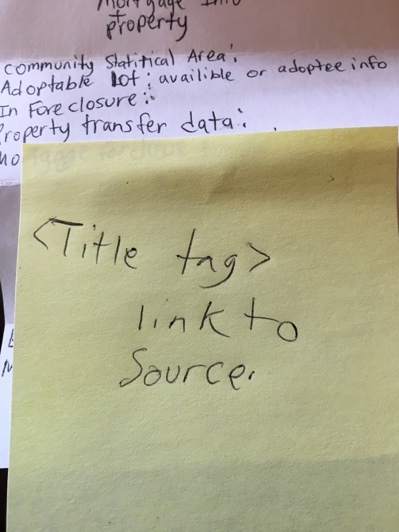 Mortgage Info
+
property
Community Statitical Area:
Adoptable lot: availible or adoptee info
In Foreclosure:
Property transfer data:
<Title tag>
link to
Source.